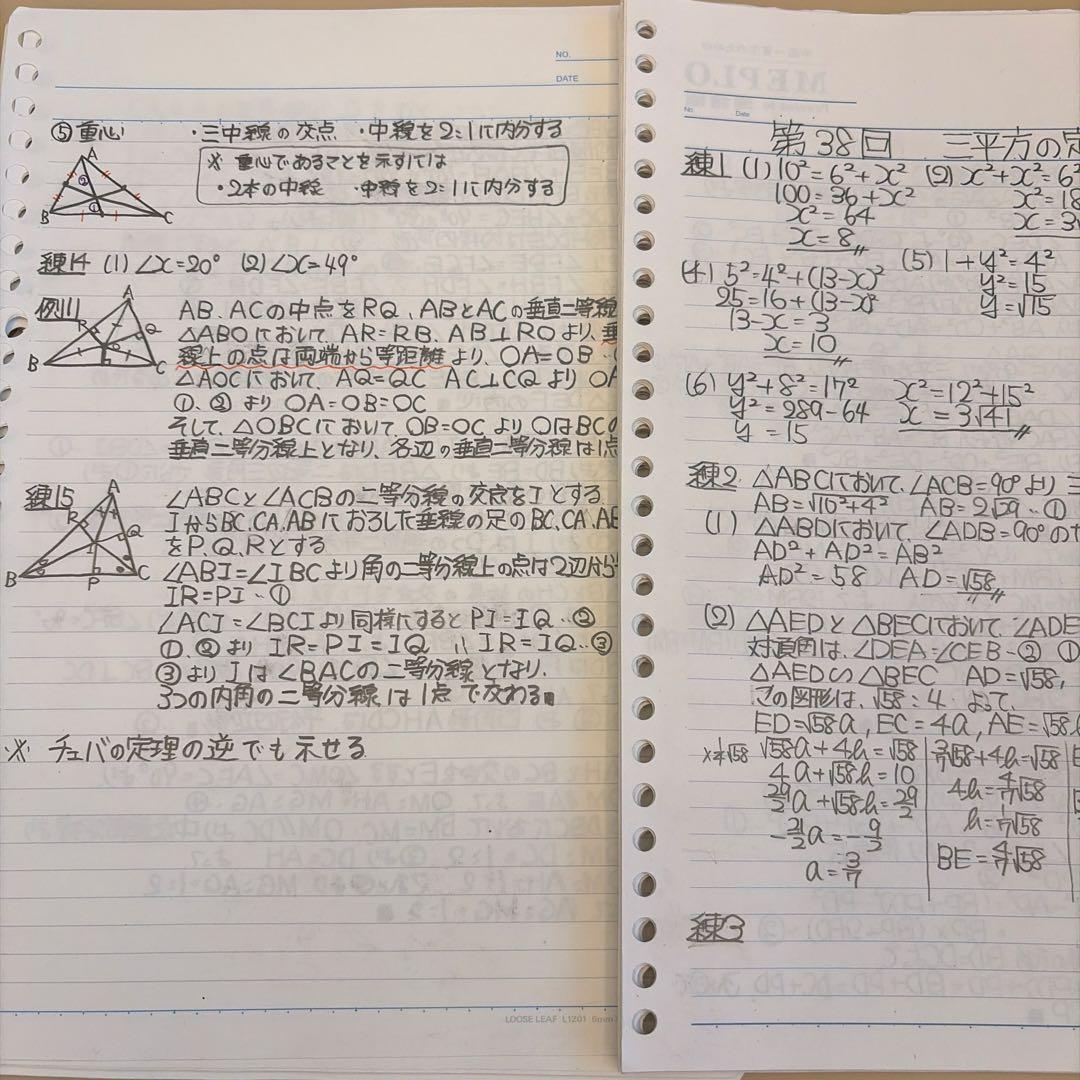 NO.
DATE
⑤重心 ・三中線の交点 ・中線を2:1に内分する
※ 重心であることを示すには
・2本の中線 ・中線を2:1に内分する
A
②
①
B C
練14 (1) ∠x=20° (2) ∠x=49°
例11 AB、ACの中点をRQ、ABとACの垂直二等線
△ABOにおいて、AR=RB、AB⊥ROより、垂
線上の点は両端から等距離より、OA=OB
△AOCにおいて、AQ=QC AC⊥CQより OA
①、②より OA=OB=OC
そして、△OBCにおいて、OB=OCより OはBCの
垂直二等分線上となり、各辺の垂直二等分線は1点
A
R Q
O
B C
練15 ∠ABCと∠ACBの二等分線の交点をIとする
IからBC、CA、ABにおろした垂線の足のBC、CA、AB
をP、Q、Rとする
∠ABI=∠IBCより角の二等分線上の点は2辺から
IR=PI‥①
∠ACI=∠BCIより同様にするとPI=IQ‥②
①、②より IR=PI=IQ ∴IR=IQ‥③
③よりIは∠BACの二等分線となり、
3つの内角の二等分線は1点で交わる■
A
R Q
B P C
※ チェバの定理の逆でも示せる
LOOSE LEAF L1201 6mm
No. Date
第38回 三平方の定
練1 (1) 10²=6²+x² (2) x²+x²=6²
100=36+x² x²=18
x²=64 x=3√
x=8
(4) 5²=4²+(13-x)² (5) 1+y²=4²
25=16+(13-x)² y²=15
13-x=3 y=√15
x=10
(6) y²+8²=17² x²=12²+15²
y²=289-64 x=3√41
y=15
練2 △ABCにおいて、∠ACB=90°より三
AB=√10²+4² AB=2√29‥①
(1) △ABDにおいて、∠ADB=90°の
AD²+AD²=AB²
AD²=58 AD=√58
(2) △AEDと△BECにおいて、∠ADE
対頂角は、∠DEA=∠CEB‥② ①
△AED∽△BEC AD=√58,
この図形は、√58:4 よって、
ED=√58a, EC=4a, AE=√58
√58a+4b=√58
4a+√58b=10
29/2a+√58b=29/2
-21/2a=-9/2
a=3/7
3/7√58+4b=√58
4b=4/7√58
b=1/7√58
BE=4/7√58
練3